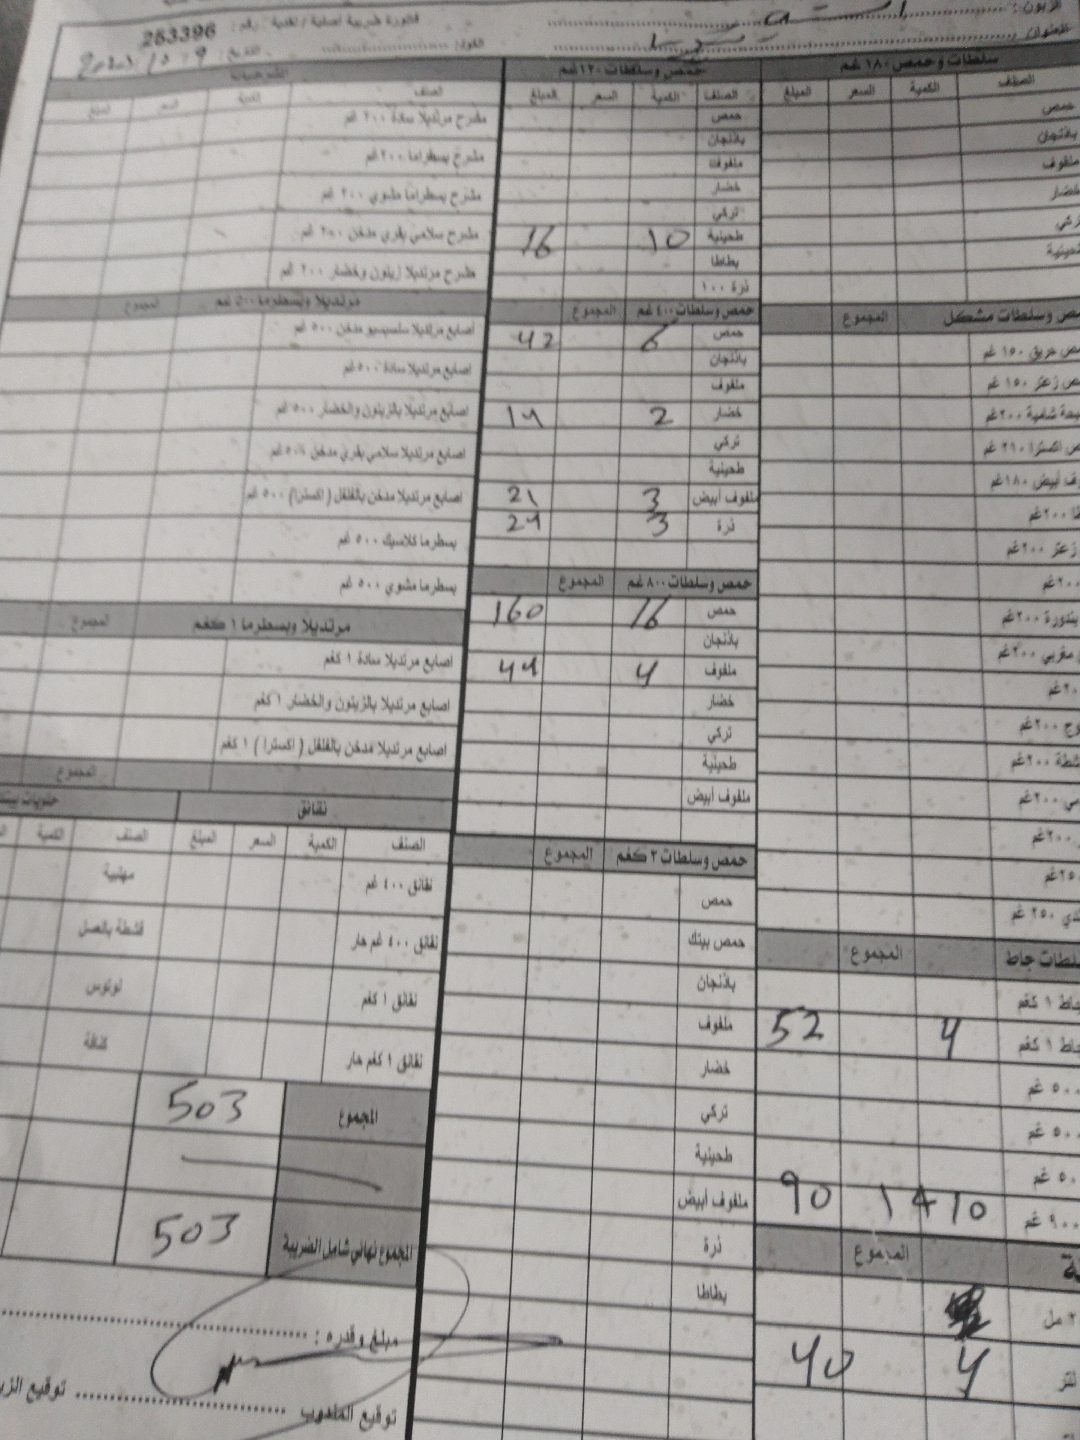 الزبون :
فاتورة ضريبية اصلية / نقدية : رقم : 253396
العنوان
سلطات وحمص ١٨٠ غم
الصنف الكمية السعر المبلغ
حمص
باذنجان
ملفوف
خضار
تركي
طحينية
حمص وسلطات مشكل المجموع
حمص حريق ١٥٠ غم
حمص زعتر ١٥٠ غم
شامية ٢٠٠ غم
اكسترا ٢١٠ غم
أبيض ١٨٠ غم
٢٠٠ غم
زعتر ٢٠٠ غم
٢٠٠ غم
بندورة ٢٠٠ غم
مغربي ٢٠٠ غم
٢٠٠ غم
٢٠٠ غم
٢٠٠ غم
٢٠٠ غم
٢٠٠ غم
٢٥٠ غم
٢٥٠ غم
سلطات جاط المجموع
جاط ١ كغم
جاط ١ كغم 4 52
٥٠٠ غم
٥٠٠ غم
٥٠ غم
٩٠٠ غم 10 + 1 90
المجموع
مل
لتر 4 40
حمص وسلطات ١٢٠ غم
الصنف الكمية السعر المبلغ
حمص
باذنجان
ملفوف
خضار
تركي
طحينية 10 16
بطاطا
ذرة ١٠٠
حمص وسلطات ٤٠٠ غم المجموع
حمص 6 42
باذنجان
ملفوف
خضار 2 14
تركي
طحينية
ملفوف أبيض 3 21
ذرة 3 24
حمص وسلطات ٨٠٠ غم المجموع
حمص 16 160
باذنجان
ملفوف 4 44
خضار
تركي
طحينية
ملفوف أبيض
حمص وسلطات ٢ كغم المجموع
حمص
حمص بيتك
باذنجان
ملفوف
خضار
تركي
طحينية
ملفوف أبيض
ذرة
بطاطا
الصنف الكمية السعر المبلغ
مشرح مرتديلا سادة ٢٠٠ غم
مشرح بسطراما ٢٠٠ غم
مشرح بسطراما مشوي ٢٠٠ غم
مشرح سلامي بقري مدخن ٢٠٠ غم
مشرح مرتديلا زيتون وخضار ٢٠٠ غم
مرتديلا وبسطرما ٥٠٠ غم المجموع
اصابع مرتديلا سلسيسيو مدخن ٥٠٠ غم
اصابع مرتديلا سادة ٥٠٠ غم
اصابع مرتديلا بالزيتون والخضار ٥٠٠ غم
اصابع مرتديلا سلامي بقري مدخن ٥٠٠ غم
اصابع مرتديلا مدخن بالفلفل ( اكسترا ) ٥٠٠ غم
بسطرما كلاسيك ٥٠٠ غم
بسطرما مشوي ٥٠٠ غم
مرتديلا وبسطرما ١ كغم المجموع
اصابع مرتديلا سادة ١ كغم
اصابع مرتديلا بالزيتون والخضار ١ كغم
اصابع مرتديلا مدخن بالفلفل ( اكسترا ) ١ كغم
المجموع
نقانق
الصنف الكمية السعر المبلغ
نقانق ٤٠٠ غم
نقانق ٤٠٠ غم حار
نقانق ١ كغم
نقانق ١ كغم حار
حلويات
الصنف الكمية
مهلبية
قشطة بالعسل
لوتوس
كنافة
المجموع 503
المجموع نهائي شامل الضريبة 503
مبلغ وقدره :
توقيع المندوب
توقيع